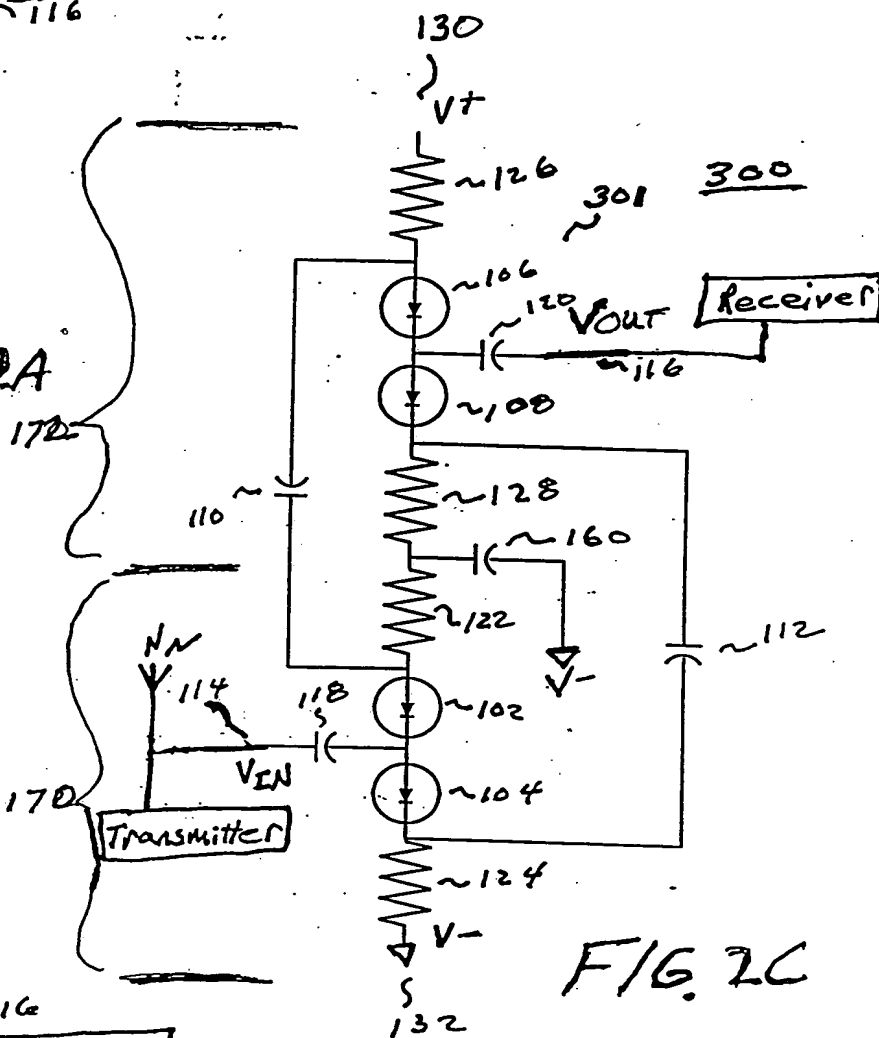 116
130
V+
126
300
301
106
120
VOUT
Receiver
116
2A
108
172
128
110
160
122
112
V-
114
118
102
VIN
170
104
Transmitter
124
V-
FIG. 2C
132